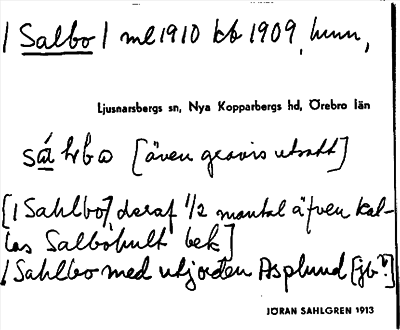 / Salbo / ml 1910 kb 1909, hmn,
Ljusnarsbergs sn, Nya Kopparbergs hd, Örebro län
[även gravis utsatt]
[/ Sahlbo/] deraf 1/2 mantal äfven kal-
las Salbohult bek]
/ Sahlbo med utjorden Asplund [jb?]
JÖRAN SAHLGREN 1913